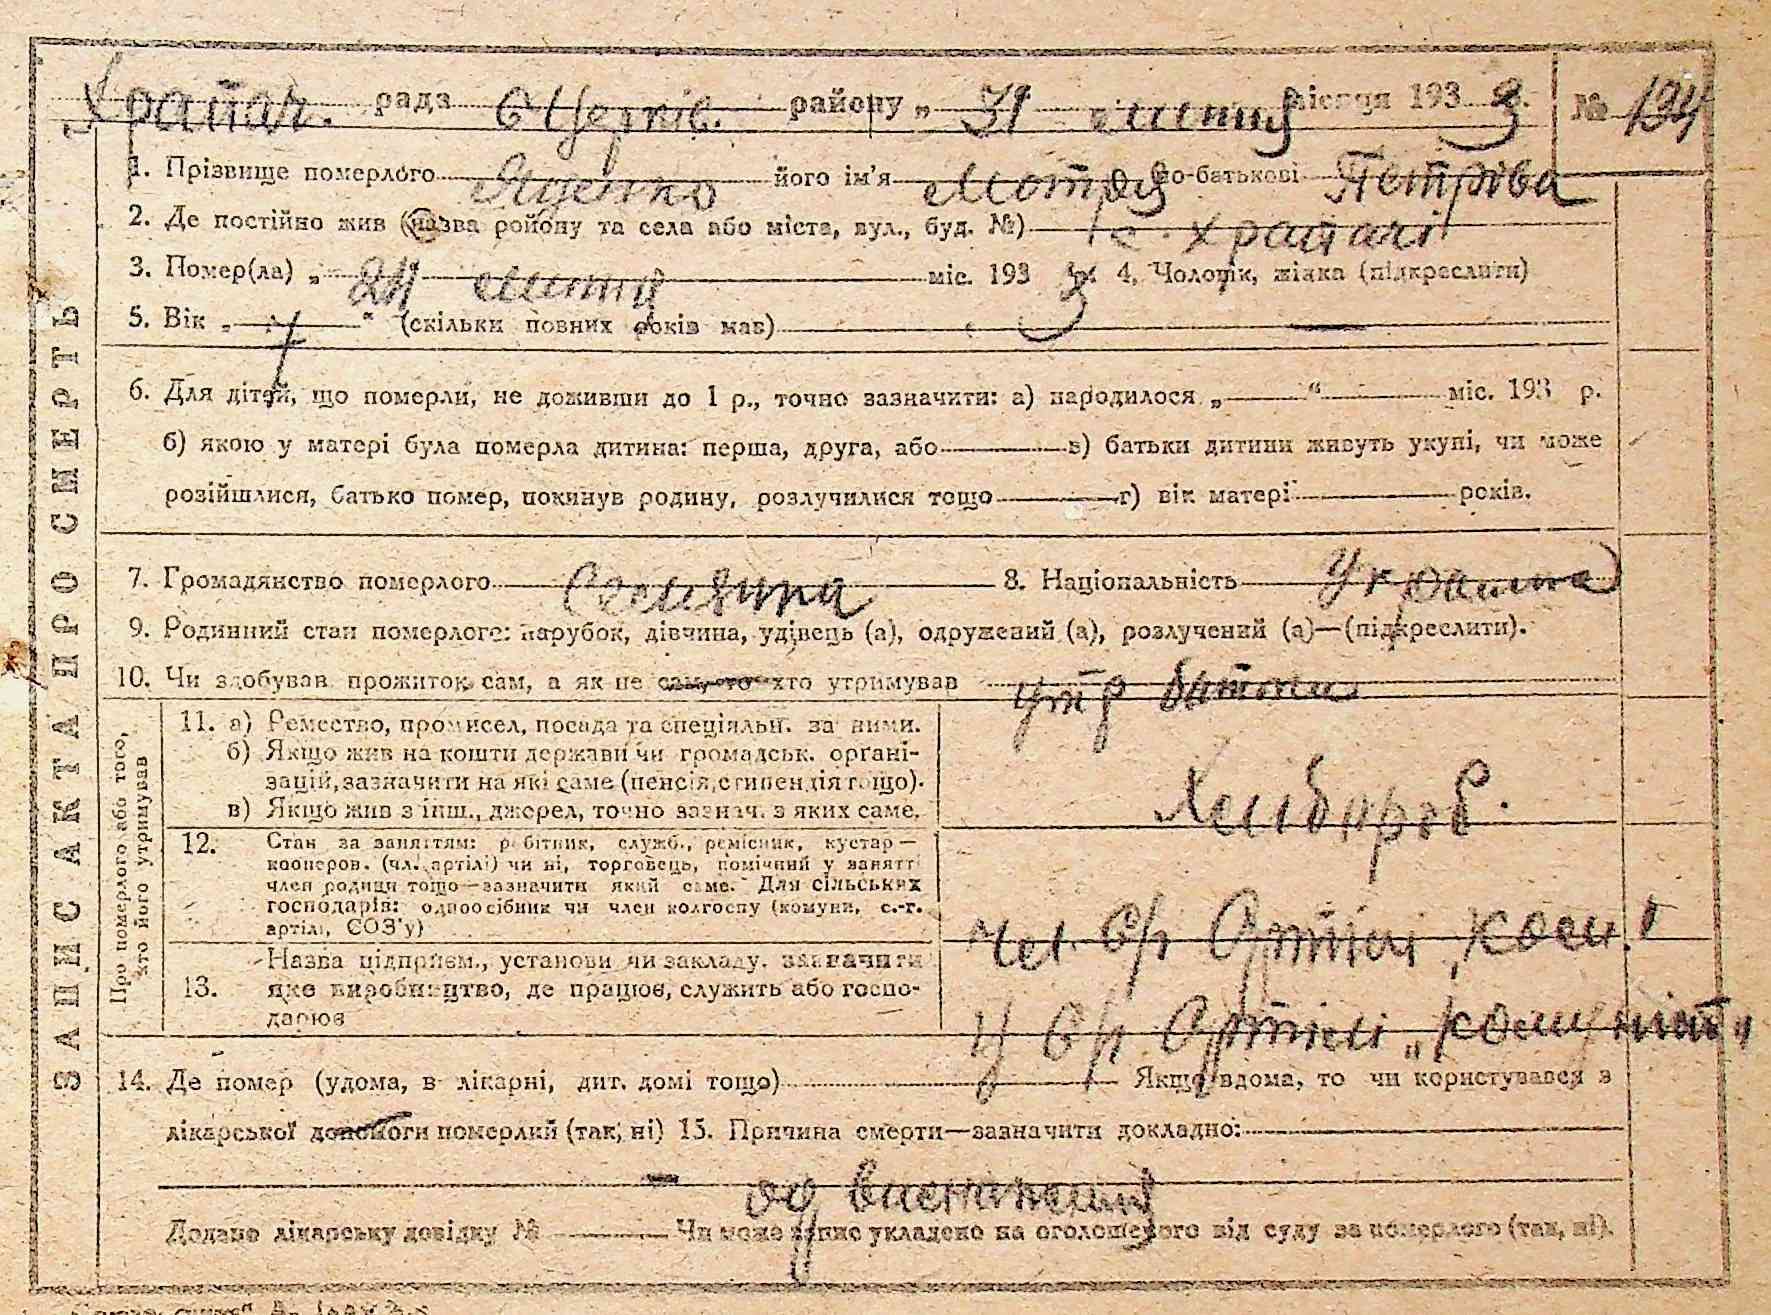 Храпач. рада б Церків. району „ 31 липня місяця 193 3 р. № 194
1. Прізвище померлого Яценко його ім'я Мотря по-батькові Петрівна
2. Де постійно жив (назва району та села або міста, вул., буд. №) с. Храпачі
3. Помер(ла) „ липня міс. 193 3 р. 4. Чоловік, жінка (підкреслити)
5. Вік „ 7 “ (скільки повних років мав)
6. Для дітей, що померли, не доживши до 1 р., точно зазначити: а) народилося „ “ міс. 193 р.
б) якою у матері була померла дитина: перша, друга, або в) батьки дитини живуть укупі, чи може
розійшлися, батько помер, покинув родину, розлучилися тощо г) вік матері років.
7. Громадянство померлого 8. Національність Україн
9. Родинний стан померлого: парубок, дівчина, удівець (а), одружений (а), розлучений (а)—(підкреслити).
10. Чи здобував прожиток сам, а як не сам, то хто утримував утр батьки
ЗАПИС АКТА ПРО СМЕРТЬ
Про померлого або того, хто його утримував
11. а) Ремество, промисел, посада та спеціяльн. за ними.
б) Якщо жив на кошти держави чи громадськ. органі-
зацій, зазначити на які саме (пенсія, стипендія тощо).
в) Якщо жив з інш., джерел, точно зазнач. з яких саме.
Хлібороб.
12. Стан за заняттям: робітник, служб., ремісник, кустар—
кооперов. (чл. артілі) чи ні, торговець, помічний у занятті
член родини тощо—зазначити який саме. Для сільських
господарів: одноосібник чи член колгоспу (комуни, с.-г.
артілі, СОЗ'у)
Чл. с/г Артілі „Ком."
13. Назва підприєм., установи чи закладу. зазначити
яке виробництво, де працює, служить або госпо-
дарює
У с/г Артілі „Комуніст"
14. Де помер (удома, в лікарні, дит. домі тощо) Якщо вдома, то чи користувався з
лікарської допомоги померлий (так, ні) 15. Причина смерти—зазначити докладно:
— од виснаження
Додано лікарську довідку № Чи може запис укладено на оголошеного від суду за померлого (так, ні).